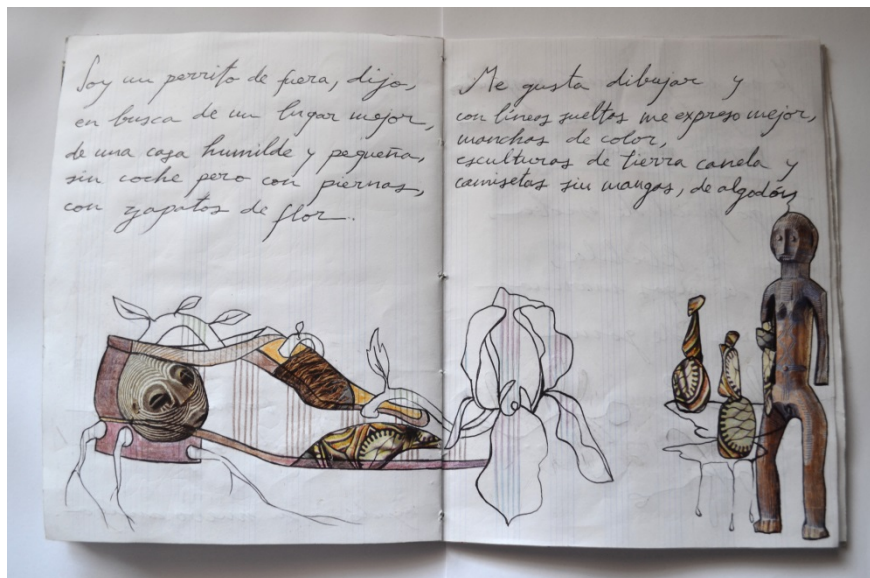 Soy un perrito de fuera, dijo,
en busca de un lugar mejor,
de una casa humilde y pequeña,
sin coche pero con piernas,
con zapatos de flor.
Me gusta dibujar y
con líneas sueltas me expreso mejor,
manchas de color,
esculturas de tierra canela y
camisetas sin mangas, de algodón